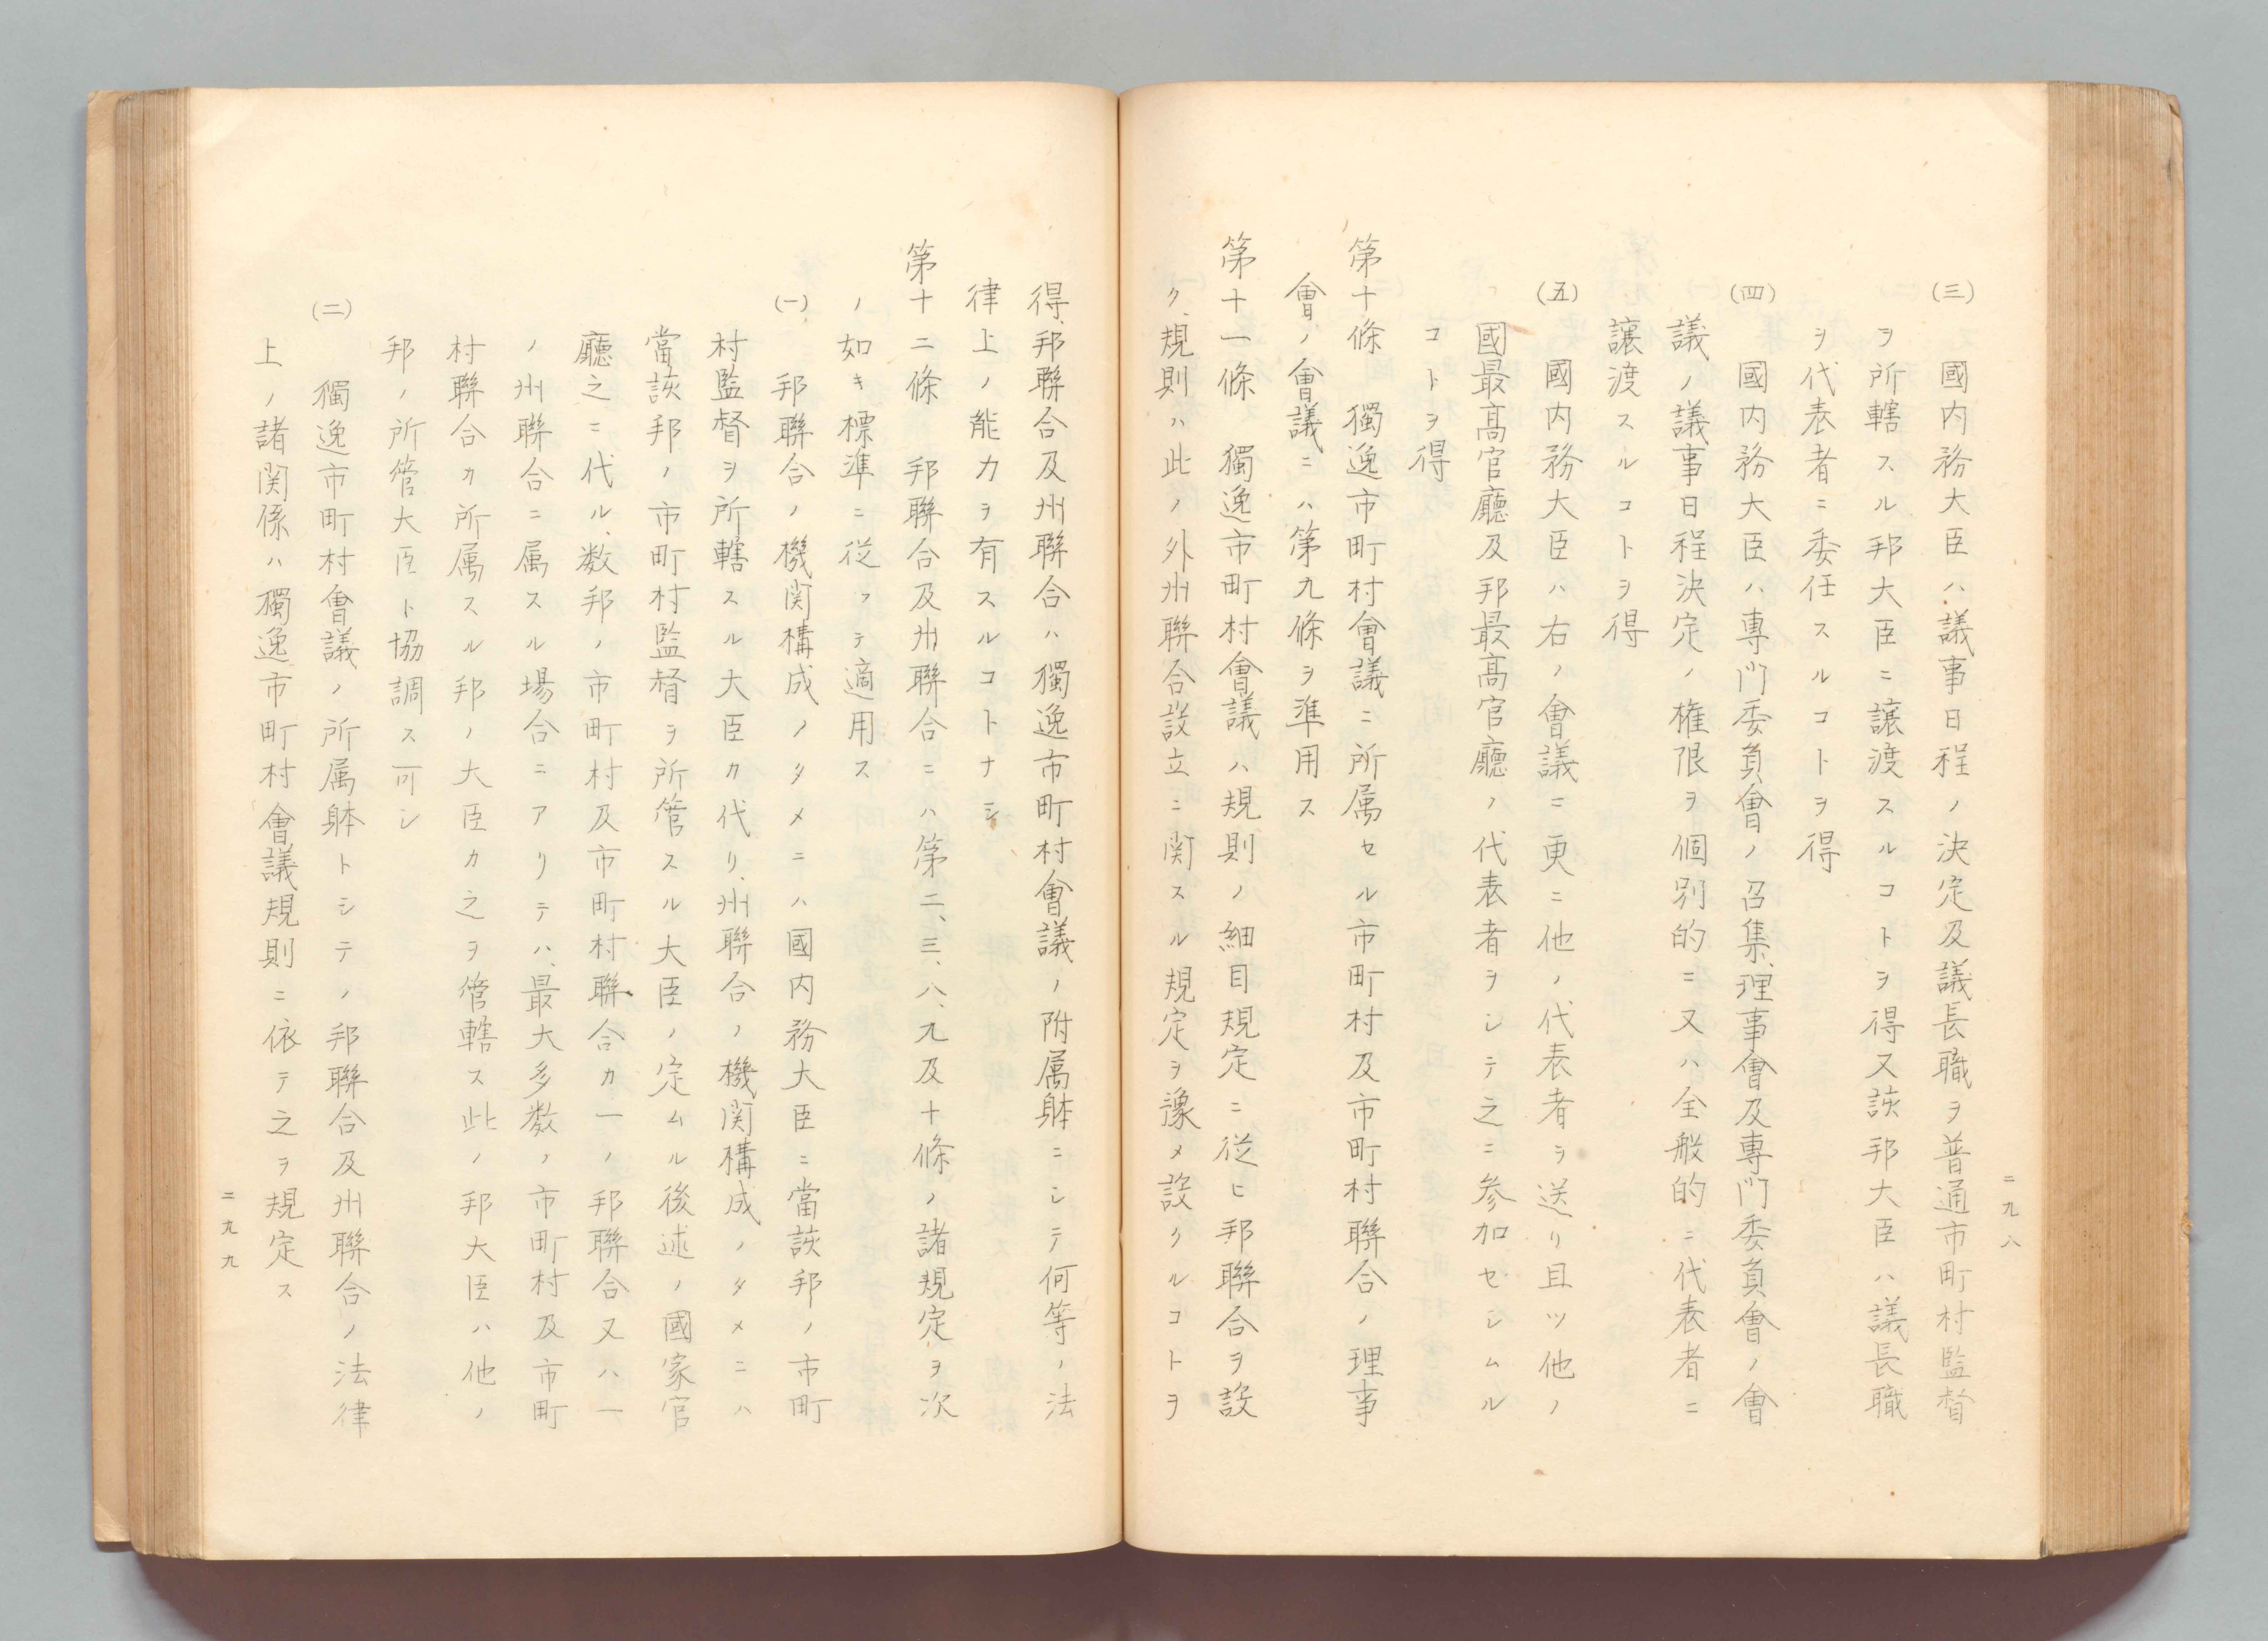 二九八
(三)　國内務大臣ハ議事日程ノ決定及議長職ヲ普通市町村監督
ヲ所轄スル邦大臣ニ譲渡スルコトヲ得又該邦大臣ハ議長職
ヲ代表者ニ委任スルコトヲ得
(四)　國内務大臣ハ專門委員會ノ召集、理事會及專門委員會ノ會
議ノ議事日程決定ノ権限ヲ個別的ニ又ハ全般的ニ代表者ニ
譲渡スルコトヲ得
(五)　國内務大臣ハ右ノ會議ニ更ニ他ノ代表者ヲ送リ且ツ他ノ
國最高官廳及邦最高官廳ノ代表者ヲシテ之ニ参加セシムル
コトヲ得
第十條　獨逸市町村會議ニ所属セル市町村及市町村聯合ノ理事
會ノ會議ニハ第九條ヲ準用ス
第十一條　獨逸市町村會議ハ規則ノ細目規定ニ従ヒ邦聯合ヲ設
ク、規則ハ此ノ外州聯合設立ニ関スル規定ヲ豫メ設クルコトヲ
得、邦聯合及州聯合ハ獨逸市町村會議ノ附属躰ニシテ何等ノ法
律上ノ能力ヲ有スルコトナシ
第十二條　邦聯合及州聯合ニハ第二、三、八、九及十條ノ諸規定ヲ次
ノ如キ標準ニ従ッテ適用ス
(一)　邦聯合ノ機関構成ノタメニハ國内務大臣ニ當該邦ノ市町
村監督ヲ所轄スル大臣カ代リ、州聯合ノ機関構成ノタメニハ
當該邦ノ市町村監督ヲ所管スル大臣ノ定ムル後述ノ國家官
廳之ニ代ル、数邦ノ市町村及市町村聯合カ一ノ邦聯合又ハ一
ノ州聯合ニ属スル場合ニアリテハ、最大多数ノ市町村及市町
村聯合カ所属スル邦ノ大臣カ之ヲ管轄ス此ノ邦大臣ハ他ノ
邦ノ所管大臣ト協調ス可シ
(二)　獨逸市町村會議ノ所属躰トシテノ邦聯合及州聯合ノ法律
上ノ諸関係ハ獨逸市町村會議規則ニ依テ之ヲ規定ス
二九九